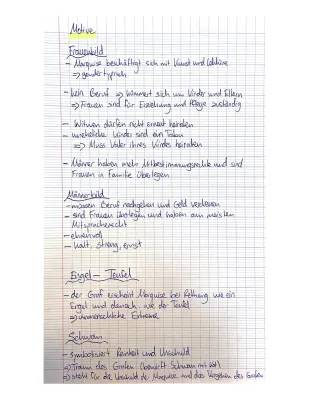 Motive
Frauenbild
- Marquise beschäftigt sich mit Kunst und Lektüre
⇒ gendertypisch
- kein Beruf ⇒ kümmert sich um Kinder und Eltern
⇒ Frauen sind für Erziehung und Pflege zuständig
- Witwen dürfen nicht erneut heiraten
- uneheliche Kinder sind ein Tabu
⇒ Muss Vater ihres Kindes heiraten
- Männer haben mehr Mitbestimmungsrechte und sind
Frauen in Familie überlegen
Männerbild
- müssen Beruf nachgehen und Geld verdienen
- sind Frauen überlegen und haben am meisten
Mitspracherecht
- ehrenvoll
- kalt, streng, ernst
Engel - Teufel
- der Graf erscheint Marquise bei Rettung wie ein
Engel und danach wie der Teufel
⇒ unmenschliche Extreme
Schwan
- symbolisiert Reinheit und Unschuld
⇒ Traum des Grafen (bewirft Schwan mit Kot)
⇒ steht für die Unschuld der Marquise und das Vergehen des Grafen